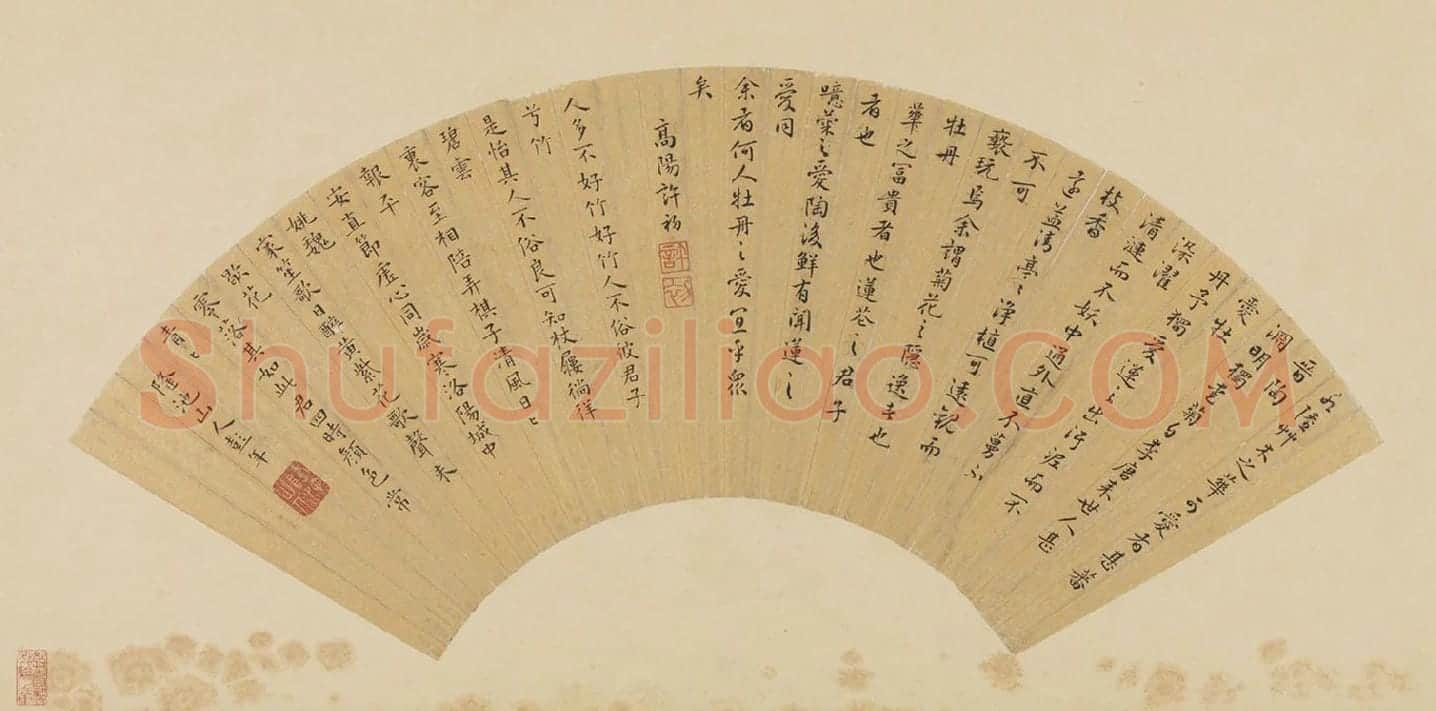 水陸艸木之華可愛者甚蕃
晉陶
淵明獨愛菊自李唐來世人甚
愛牡
丹予獨愛蓮之出污泥而不
染濯
清漣而不妖中通外直不蔓不
枝香
遠益清亭亭淨植可遠觀而
不可
褻玩焉余謂菊花之隱逸者也
牡丹
華之冨貴者也蓮花之君子
者也
噫菊之愛陶後鮮有聞蓮之
愛同
余者何人牡丹之愛宜乎衆
矣
高陽許初
許初
人多不好竹好竹人不俗彼君子
兮竹
是怡其人不俗良可知杖屨徜徉
碧雲
裏客至相陪弄棋子清風日日
報平
安直節虛心同歲寒洛陽城中
姚魏
家笙歌日醉黃紫花歌聲未
歇花
零落其如此君四時顏色常
青青
隆池山人彭年
Shufaziliao.COM